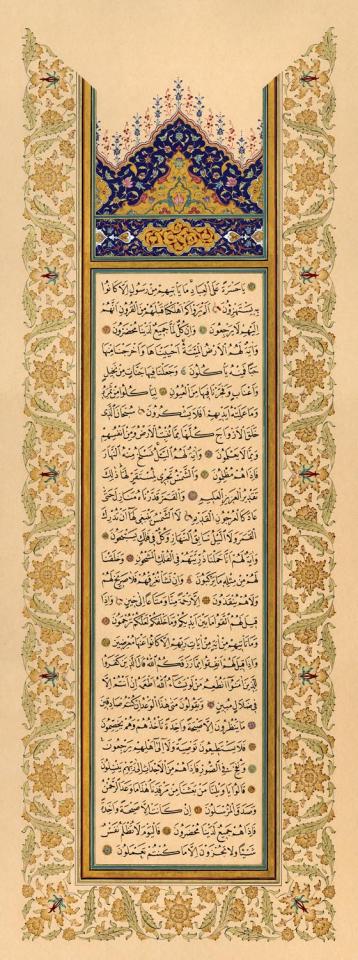 يَا حَسْرَةً عَلَى الْعِبَادِ مَا يَأْتِيهِمْ مِنْ رَسُولٍ اِلَّا كَانُوا
بِهِ يَسْتَهْزِؤُنَ اَلَمْ يَرَوْا كَمْ اَهْلَكْنَا قَبْلَهُمْ مِنَ الْقُرُونِ اَنَّهُمْ
اِلَيْهِمْ لَا يَرْجِعُونَ وَاِنْ كُلٌّ لَمَّا جَمِيعٌ لَدَيْنَا مُحْضَرُونَ
وَاٰيَةٌ لَهُمُ الْاَرْضُ الْمَيْتَةُ اَحْيَيْنَاهَا وَاَخْرَجْنَا مِنْهَا
حَبًّا فَمِنْهُ يَأْكُلُونَ وَجَعَلْنَا فِيهَا جَنَّاتٍ مِنْ نَخِيلٍ
وَاَعْنَابٍ وَفَجَّرْنَا فِيهَا مِنَ الْعُيُونِ لِيَأْكُلُوا مِنْ ثَمَرِهِ
وَمَا عَمِلَتْهُ اَيْدِيهِمْ اَفَلَا يَشْكُرُونَ سُبْحَانَ الَّذِي
خَلَقَ الْاَزْوَاجَ كُلَّهَا مِمَّا تُنْبِتُ الْاَرْضُ وَمِنْ اَنْفُسِهِمْ
وَمِمَّا لَا يَعْلَمُونَ وَاٰيَةٌ لَهُمُ الَّيْلُ نَسْلَخُ مِنْهُ النَّهَارَ
فَاِذَا هُمْ مُظْلِمُونَ وَالشَّمْسُ تَجْرِي لِمُسْتَقَرٍّ لَهَا ذٰلِكَ
تَقْدِيرُ الْعَزِيزِ الْعَلِيمِ وَالْقَمَرَ قَدَّرْنَاهُ مَنَازِلَ حَتّٰى
عَادَ كَالْعُرْجُونِ الْقَدِيمِ لَا الشَّمْسُ يَنْبَغِي لَهَا اَنْ تُدْرِكَ
الْقَمَرَ وَلَا الَّيْلُ سَابِقُ النَّهَارِ وَكُلٌّ فِي فَلَكٍ يَسْبَحُونَ
وَاٰيَةٌ لَهُمْ اَنَّا حَمَلْنَا ذُرِّيَّتَهُمْ فِي الْفُلْكِ الْمَشْحُونِ وَخَلَقْنَا
لَهُمْ مِنْ مِثْلِهِ مَا يَرْكَبُونَ وَاِنْ نَشَأْ نُغْرِقْهُمْ فَلَا صَرِيخَ لَهُمْ
وَلَا هُمْ يُنْقَذُونَ اِلَّا رَحْمَةً مِنَّا وَمَتَاعًا اِلٰى حِينٍ وَاِذَا
قِيلَ لَهُمُ اتَّقُوا مَا بَيْنَ اَيْدِيكُمْ وَمَا خَلْفَكُمْ لَعَلَّكُمْ تُرْحَمُونَ
وَمَا تَأْتِيهِمْ مِنْ اٰيَةٍ مِنْ اٰيَاتِ رَبِّهِمْ اِلَّا كَانُوا عَنْهَا مُعْرِضِينَ
وَاِذَا قِيلَ لَهُمْ اَنْفِقُوا مِمَّا رَزَقَكُمُ اللّٰهُ قَالَ الَّذِينَ كَفَرُوا
لِلَّذِينَ اٰمَنُوا اَنُطْعِمُ مَنْ لَوْ يَشَاءُ اللّٰهُ اَطْعَمَهُ اِنْ اَنْتُمْ اِلَّا
فِي ضَلَالٍ مُبِينٍ وَيَقُولُونَ مَتٰى هٰذَا الْوَعْدُ اِنْ كُنْتُمْ صَادِقِينَ
مَا يَنْظُرُونَ اِلَّا صَيْحَةً وَاحِدَةً تَأْخُذُهُمْ وَهُمْ يَخِصِّمُونَ
فَلَا يَسْتَطِيعُونَ تَوْصِيَةً وَلَا اِلٰى اَهْلِهِمْ يَرْجِعُونَ
وَنُفِخَ فِي الصُّورِ فَاِذَا هُمْ مِنَ الْاَجْدَاثِ اِلٰى رَبِّهِمْ يَنْسِلُونَ
قَالُوا يَا وَيْلَنَا مَنْ بَعَثَنَا مِنْ مَرْقَدِنَا هٰذَا مَا وَعَدَ الرَّحْمٰنُ
وَصَدَقَ الْمُرْسَلُونَ اِنْ كَانَتْ اِلَّا صَيْحَةً وَاحِدَةً
فَاِذَا هُمْ جَمِيعٌ لَدَيْنَا مُحْضَرُونَ فَالْيَوْمَ لَا تُظْلَمُ نَفْسٌ
شَيْئًا وَلَا تُجْزَوْنَ اِلَّا مَا كُنْتُمْ تَعْمَلُونَ